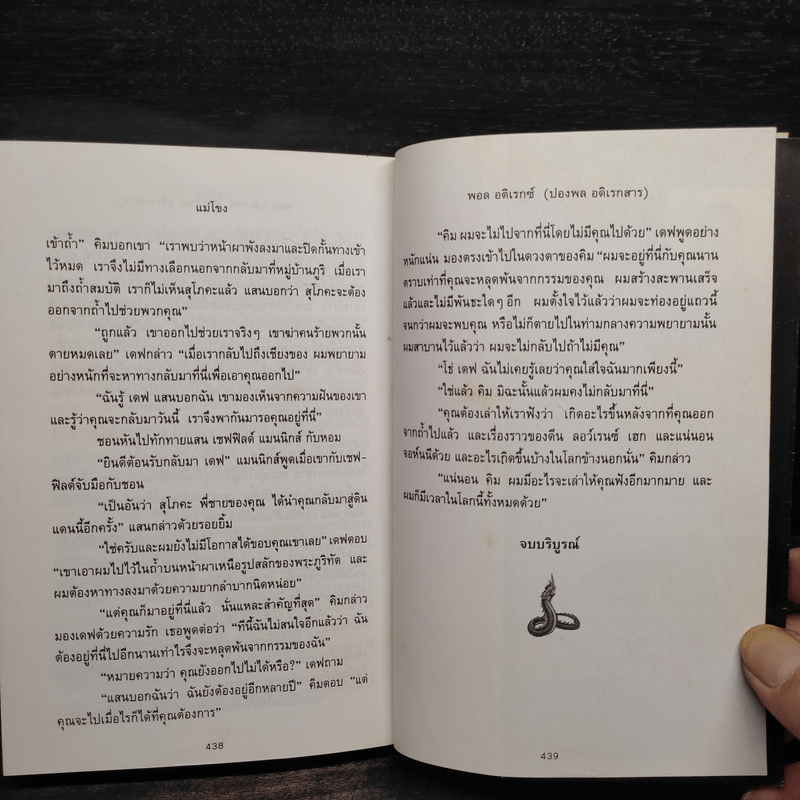 แม่โขง
เข้าถ้ำ” คิมบอกเขา “เราพบว่าหน้าผาพังลงมาและปิดกั้นทางเข้า
ไว้หมด เราจึงไม่มีทางเลือกนอกจากกลับมาที่หมู่บ้านภูริ เมื่อเรา
มาถึงถ้ำสมบัติ เราก็ไม่เห็นสุโภคะแล้ว แสนบอกว่า สุโภคะจะต้อง
ออกจากถ้ำไปช่วยพวกคุณ”
“ถูกแล้ว เขาออกไปช่วยเราจริงๆ เขาฆ่าคนร้ายพวกนั้น
ตายหมดเลย” เดฟกล่าว “เมื่อเรากลับไปถึงเชียงของ ผมพยายาม
อย่างหนักที่จะหาทางกลับมาที่นี่เพื่อเอาคุณออกไป”
“ฉันรู้ เดฟ แสนบอกฉัน เขามองเห็นจากความฝันของเขา
และรู้ว่าคุณจะกลับมาวันนี้ เราจึงพากันมารอคุณอยู่ที่นี่”
ชอนหันไปทักทายแสน เชฟฟิลด์ แมนนิกส์ กับหอม
“ยินดีต้อนรับกลับมา เดฟ” แมนนิกส์พูดเมื่อเขากับเชฟ-
ฟิลด์จับมือกับชอน
“เป็นอันว่า สุโภคะ พี่ชายของคุณ ได้นำคุณกลับมาสู่ดิน
แดนนี้อีกครั้ง” แสนกล่าวด้วยรอยยิ้ม
“ใช่ครับและผมยังไม่มีโอกาสได้ขอบคุณเขาเลย” เดฟตอบ
“เขาเอาผมไปไว้ในถ้ำบนหน้าผาเหนือรูปสลักของพระภูริทัต และ
ผมต้องหาทางลงมาด้วยความยากลำบากนิดหน่อย”
“แต่คุณก็มาอยู่ที่นี่แล้ว นั่นแหละสำคัญที่สุด” คิมกล่าว
มองเดฟด้วยความรัก เธอพูดต่อว่า “ทีนี้ฉันไม่สนใจอีกแล้วว่า ฉัน
ต้องอยู่ที่นี่ไปอีกนานเท่าไรจึงจะหลุดพ้นจากกรรมของฉัน”
“หมายความว่า คุณยังออกไปไม่ได้หรือ?” เดฟถาม
“แสนบอกฉันว่า ฉันยังต้องอยู่อีกหลายปี” คิมตอบ “แต่
คุณจะไปเมื่อไรก็ได้ที่คุณต้องการ”
438
พอล อดิเรกซ์ (ปองพล อดิเรกสาร)
“คิม ผมจะไม่ไปจากที่นี่โดยไม่มีคุณไปด้วย” เดฟพูดอย่าง
หนักแน่น มองตรงเข้าไปในดวงตาของคิม “ผมจะอยู่ที่นี่กับคุณนาน
ตราบเท่าที่คุณจะหลุดพ้นจากกรรมของคุณ ผมสร้างสะพานเสร็จ
แล้วและไม่มีพันธะใดๆ อีก ผมตั้งใจไว้แล้วว่าผมจะท่องอยู่แถวนี้
จนกว่าผมจะพบคุณ หรือไม่ก็ตายไปในท่ามกลางความพยายามนั้น
ผมสาบานไว้แล้วว่า ผมจะไม่กลับไปถ้าไม่มีคุณ”
“โธ่ เดฟ ฉันไม่เคยรู้เลยว่าคุณใส่ใจฉันมากเพียงนี้”
“ใช่แล้ว คิม มิฉะนั้นแล้วผมคงไม่กลับมาที่นี่”
“คุณต้องเล่าให้เราฟังว่า เกิดอะไรขึ้นหลังจากที่คุณออก
จากถ้ำไปแล้ว และเรื่องราวของดีน ลอว์เรนซ์ เฮก และแน่นอน
จอห์นนีด้วย และอะไรเกิดขึ้นบ้างในโลกข้างนอกนั้น” คิมกล่าว
“แน่นอน คิม ผมมีอะไรจะเล่าให้คุณฟังอีกมากมาย และ
ผมก็มีเวลาในโลกนี้ทั้งหมดด้วย”
จบบริบูรณ์
439